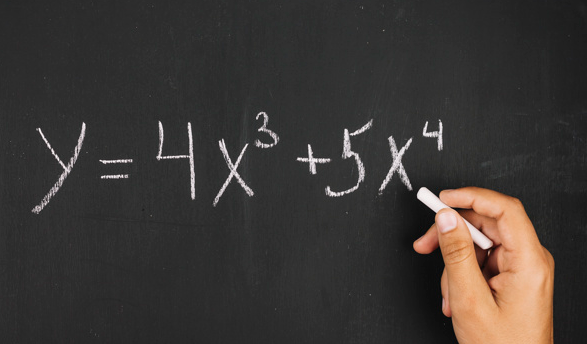 y = 4x³ + 5x⁴